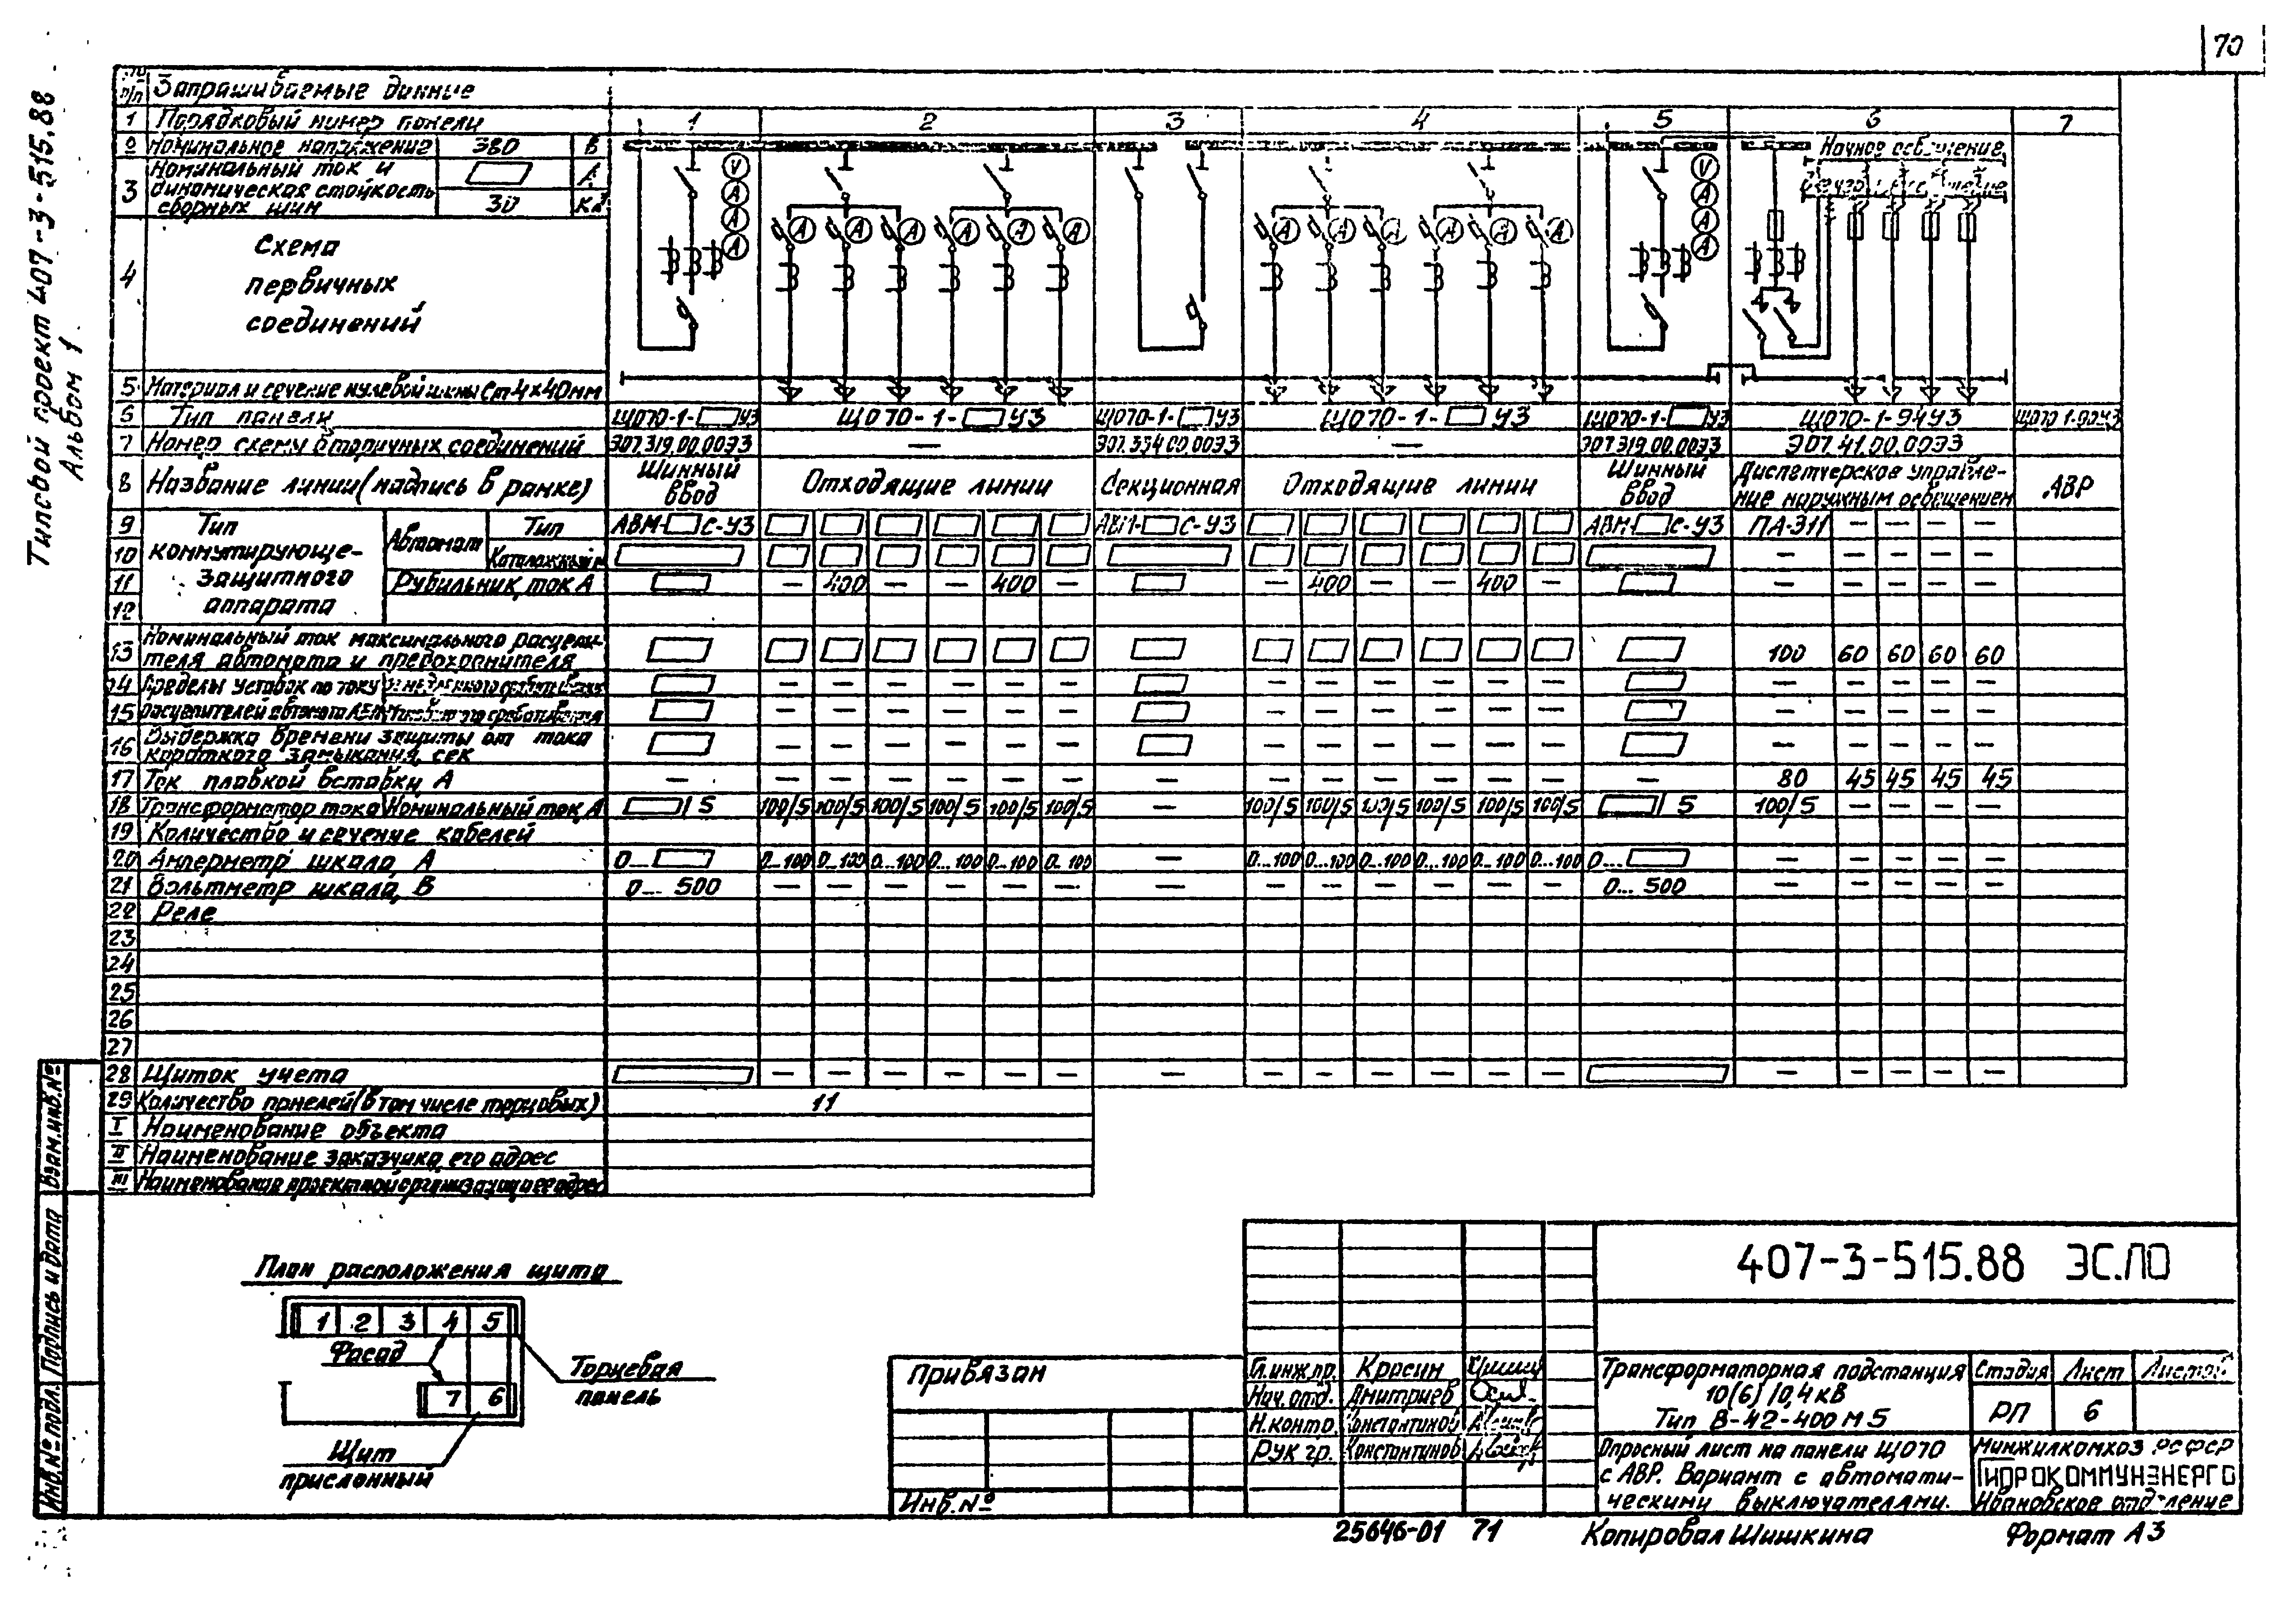 70
Типовой проект 407-3-515.88
Альбом 1
п/п Запрашиваемые данные
1 Порядковый номер панели 1 2 3 4 5 6 7
2 Номинальное напряжение 380 В
3 Номинальный ток и динамическая стойкость сборных шин А
30 кА
4 Схема первичных соединений
V А А А
А А А А А А
А А А А А А
V А А А
Ночное освещение
5 Материал и сечение нулевой шины Ст 4×40мм
6 Тип панели ЩО70-1- У3 ЩО70-1- У3 ЩО70-1- У3 ЩО70-1- У3 ЩО70-1- У3 ЩО70-1-94У3
7 Номер схемы вторичных соединений Э07.319.00.00Э3 — Э07.334.00.00Э3 — Э07.319.00.00Э3 Э07.41.00.00Э3
8 Название линии (надпись в рамке) Шинный ввод Отходящие линии Секционная Отходящие линии Шинный ввод Диспетчерское управле-ние наружным освещением АВР
9 Тип Автомат Тип АВМ- С-У3 АВМ- С-У3 АВМ- С-У3 ПА-311 — — — —
10 коммутирующе- Каталожный № — — — — —
11 защитного Рубильник, ток А — 400 — — 400 — — 400 — — 400 — — — — — —
12 аппарата
13 Номинальный ток максимального расцепи-теля автомата и предохранителя 100 60 60 60 60
14 Пределы уставок по току — — — — — — — — — — — — — — — — —
15 расцепителей автомата — — — — — — — — — — — — — — — — —
16 Выдержка времени защиты от тока короткого замыкания, сек — — — — — — — — — — — — — — — — —
17 Ток плавкой вставки, А — — — — — — — — — — — — — — — 80 45 45 45 45
18 Трансформатор тока Номинальный ток, А /5 100/5 100/5 100/5 100/5 100/5 100/5 — 100/5 100/5 100/5 100/5 100/5 100/5 /5 100/5 — — — —
19 Количество и сечение кабелей
20 Амперметр шкала, А 0... 0...100 0...100 0...100 0...100 0...100 0...100 — 0...100 0...100 0...100 0...100 0...100 0...100 0... — — — — —
21 Вольтметр шкала, В 0... 500 — — — — — — — — — — — — — 0... 500 — — — — —
22 Реле
23
24
25
26
27
28 Щиток учета — — — — — — — — — — — — — — — — — —
29 Количество панелей (в том числе торцовых) 11
I Наименование объекта
II Наименование заказчика, его адрес
III Наименование проектной организации, ее адрес
План расположения щита
1 2 3 4 5
Фасад
7 6
Торцевая панель
Щит прислонный
Взам.инв.№
Подпись и дата
Инв.№подл.
Привязан
Инв.№
407-3-515.88 ЭС.ЛО
Гл.инж.пр. Красин
Нач.отд. Дмитриев
Н.контр. Константинов
Рук гр. Константинов
Трансформаторная подстанция
10(6)/0,4кВ
Тип В-42-400М5
Стадия Лист Листов
РП 6
Опросный лист на панели ЩО70
с АВР. Вариант с автомати-
ческими выключателями.
Минжилкомхоз РСФСР
ГИПРОКОММУНЭНЕРГО
Ивановское отделение
25646-01 71
Копировал Шишкина
Формат А3